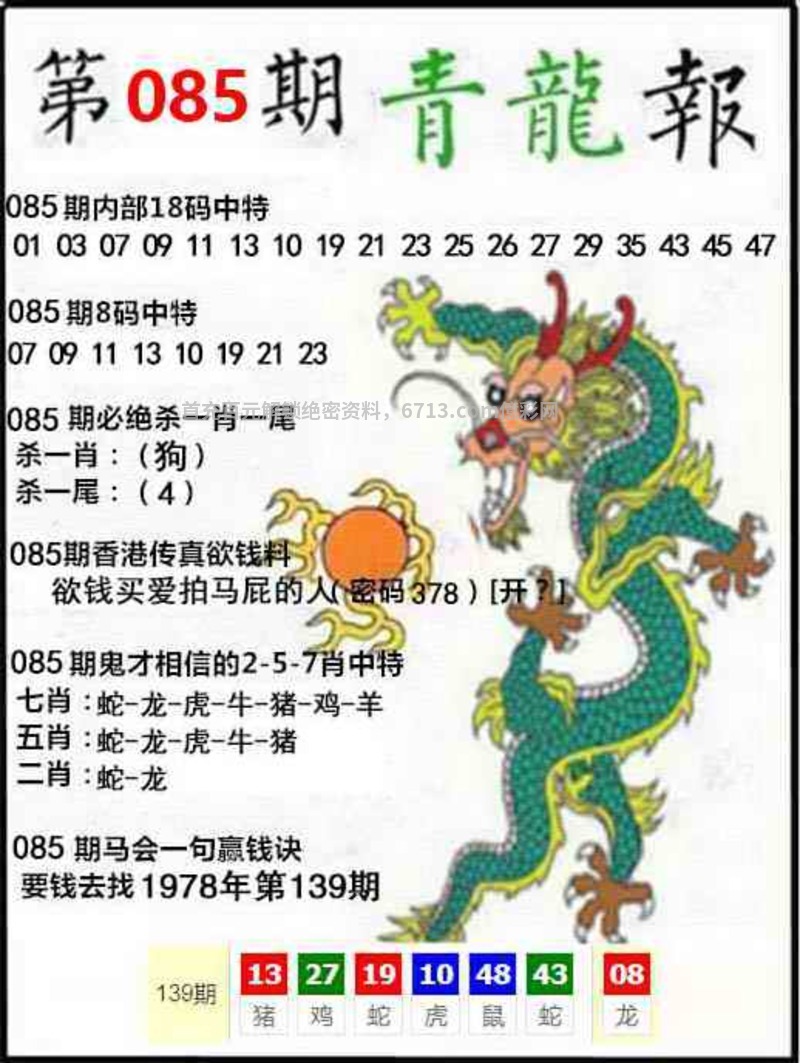 第085期青龍報
085期内部18码中特
01 03 07 09 11 13 10 19 21 23 25 26 27 29 35 43 45 47
085期8码中特
07 09 11 13 10 19 21 23
085 期必绝杀一肖一尾
杀一肖：（狗）
杀一尾：（4）
085期香港传真欲钱料
欲钱买爱拍马屁的人(密码378）[开？]
085期鬼才相信的2-5-7肖中特
七肖：蛇-龙-虎-牛-猪-鸡-羊
五肖：蛇-龙-虎-牛-猪
二肖：蛇-龙
085 期马会一句赢钱诀
要钱去找1978年第139期
139期 13 27 19 10 48 43 08
猪 鸡 蛇 虎 鼠 蛇 龙